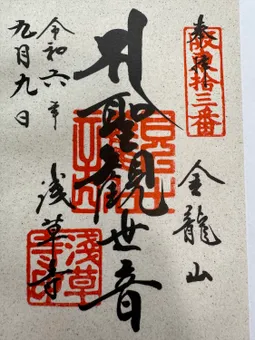 奉拝
坂東拾三番
金龍山
聖観世音
浅草寺
令和六年
九月九日
淺草寺印